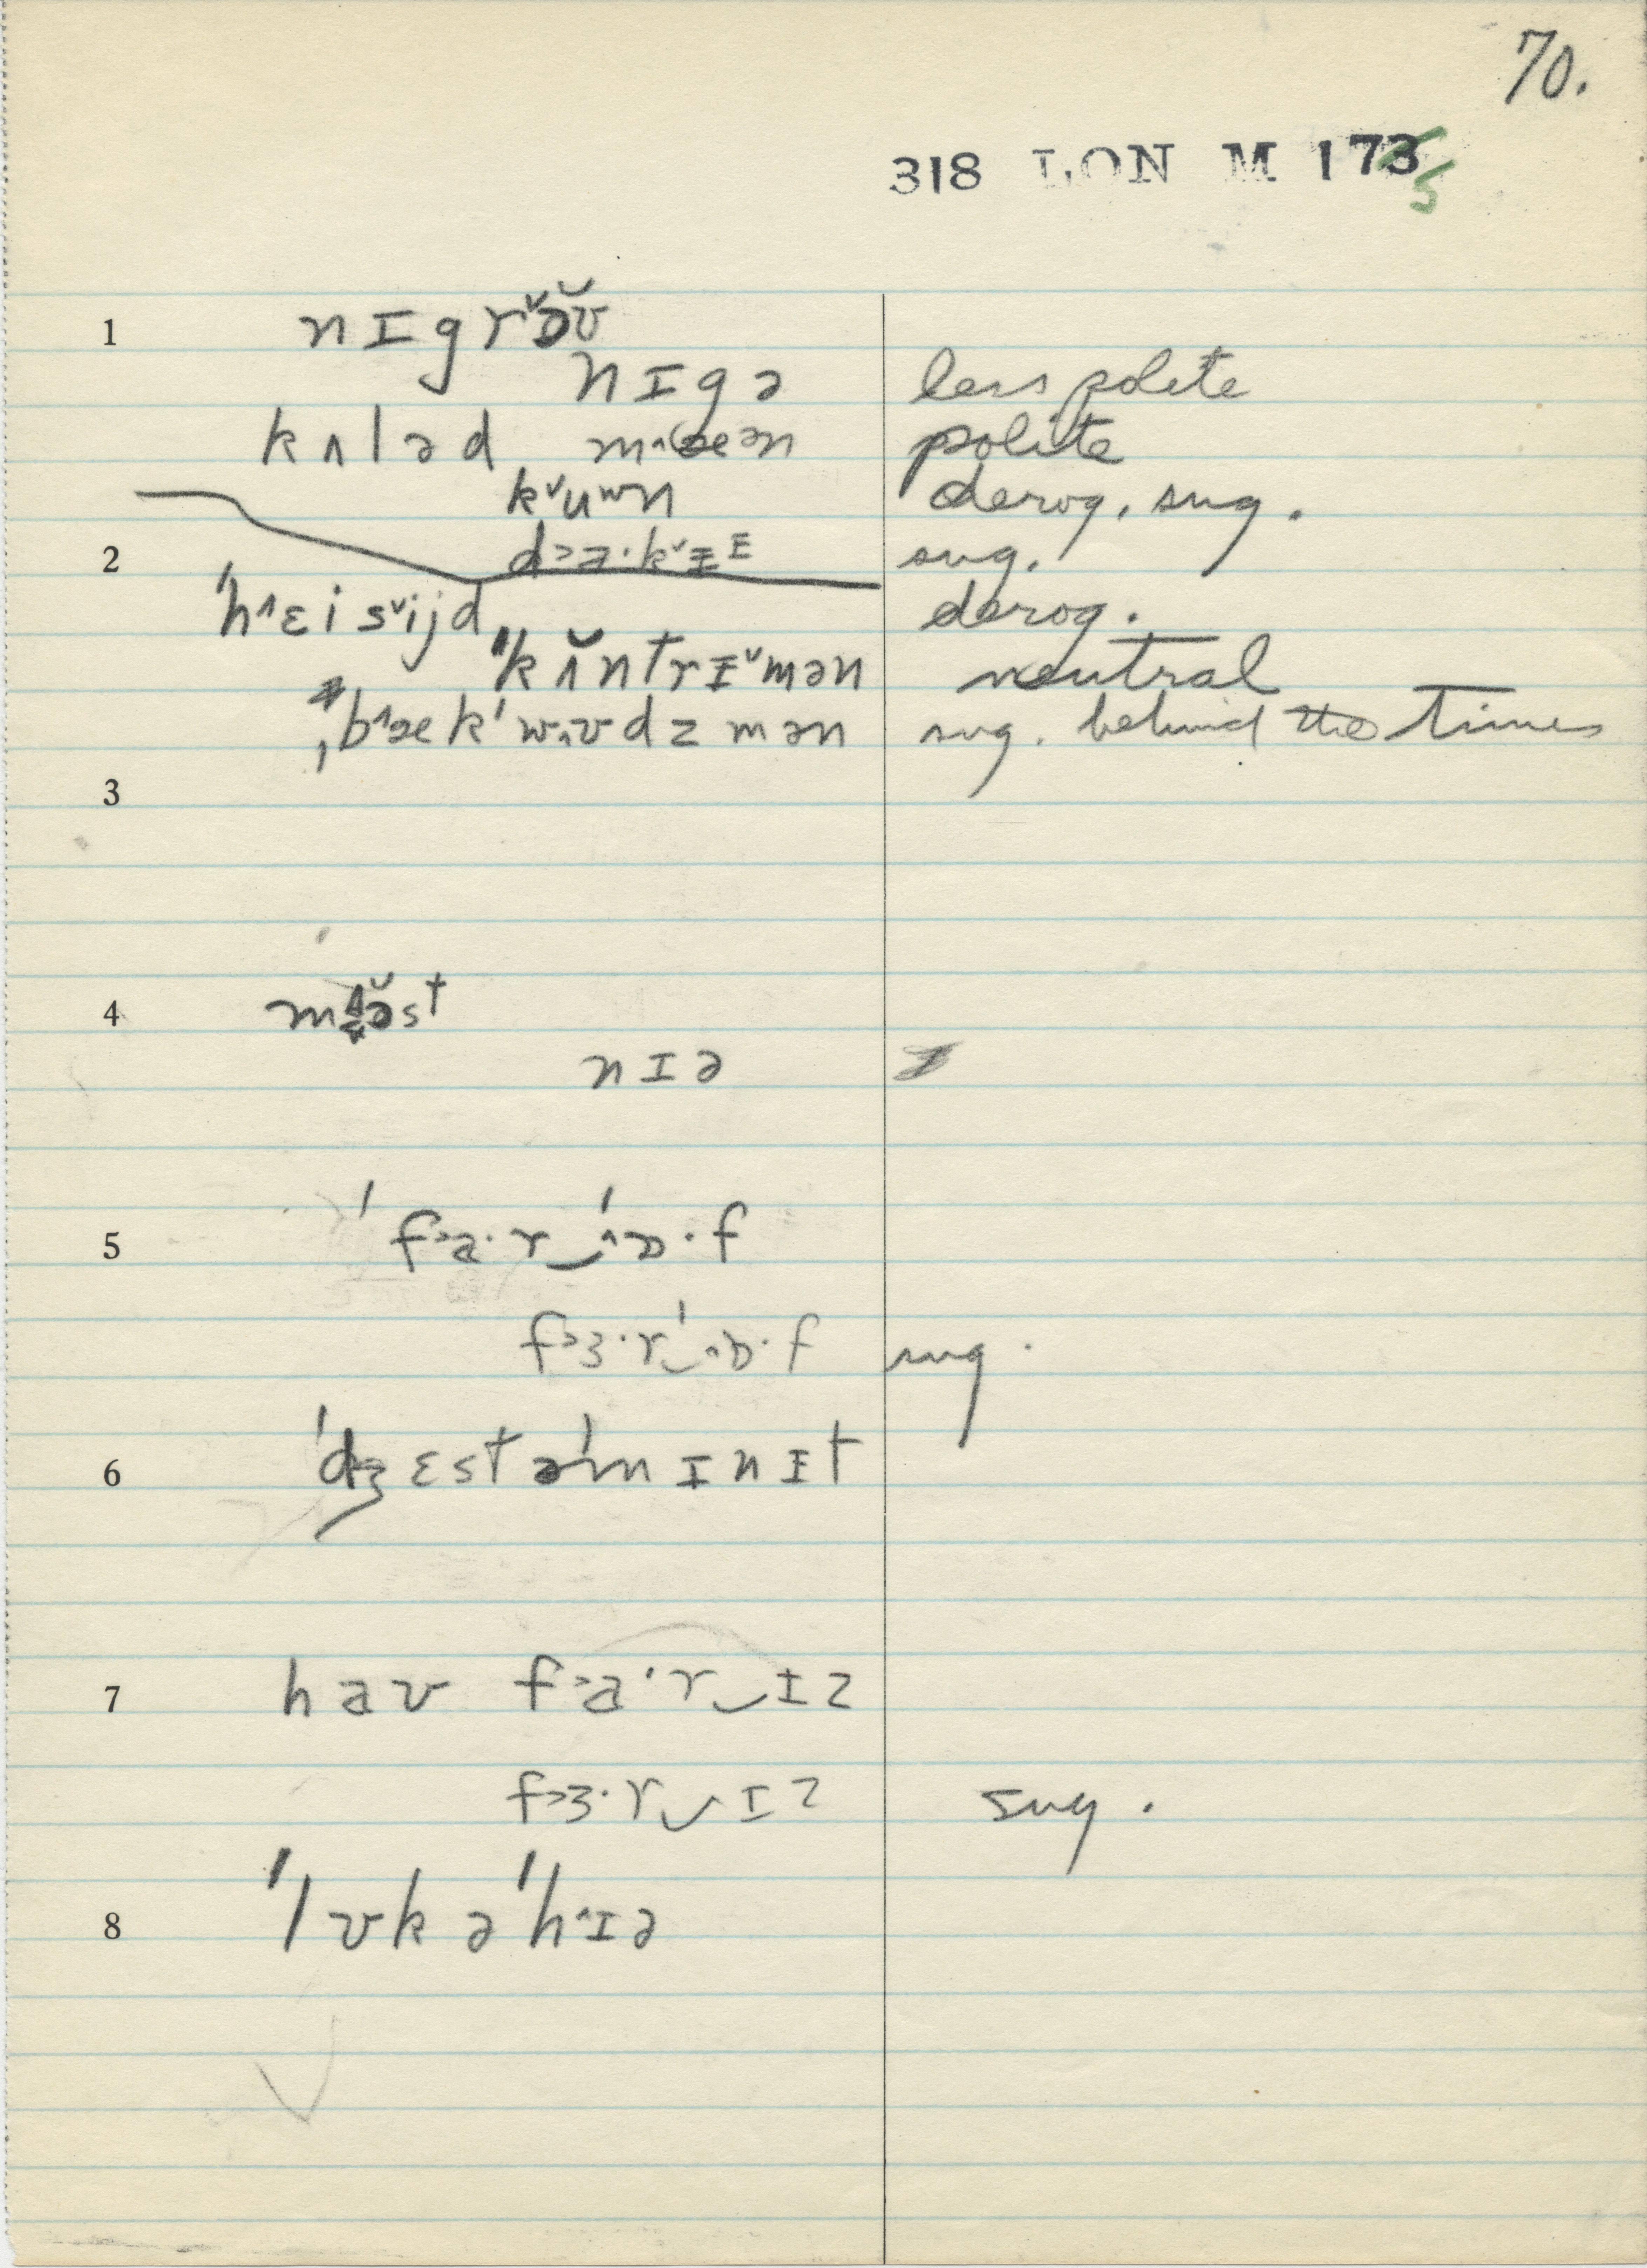 70.
318 LON M 1735
1 nɪgrˇə̆ʊ̆
nɪgə less polite
kʌləd mˆæən polite
kˇuʷn derog. sug.
2 d˃a·kˇɪᴵ sug.
ˈhˆɛisˇijd derog.
ˈˈkʌ̆ntrɪˇmən neutral
ˌbˆækˈwˌʊdzmən sug. behind the times
3
4 mʌə̆st
nɪə
5 ˈf˃a·r‿ˈˆɒ·f
f˃ɜ·r‿ˈˆɒ·f sug.
6 ˈdʒɛstəˈmɪnɪt
7 haʊ f˃a·r‿ɪz
f˃ɜ·r‿ɪz sug.
8 ˈlʊkəˈhˆɪə